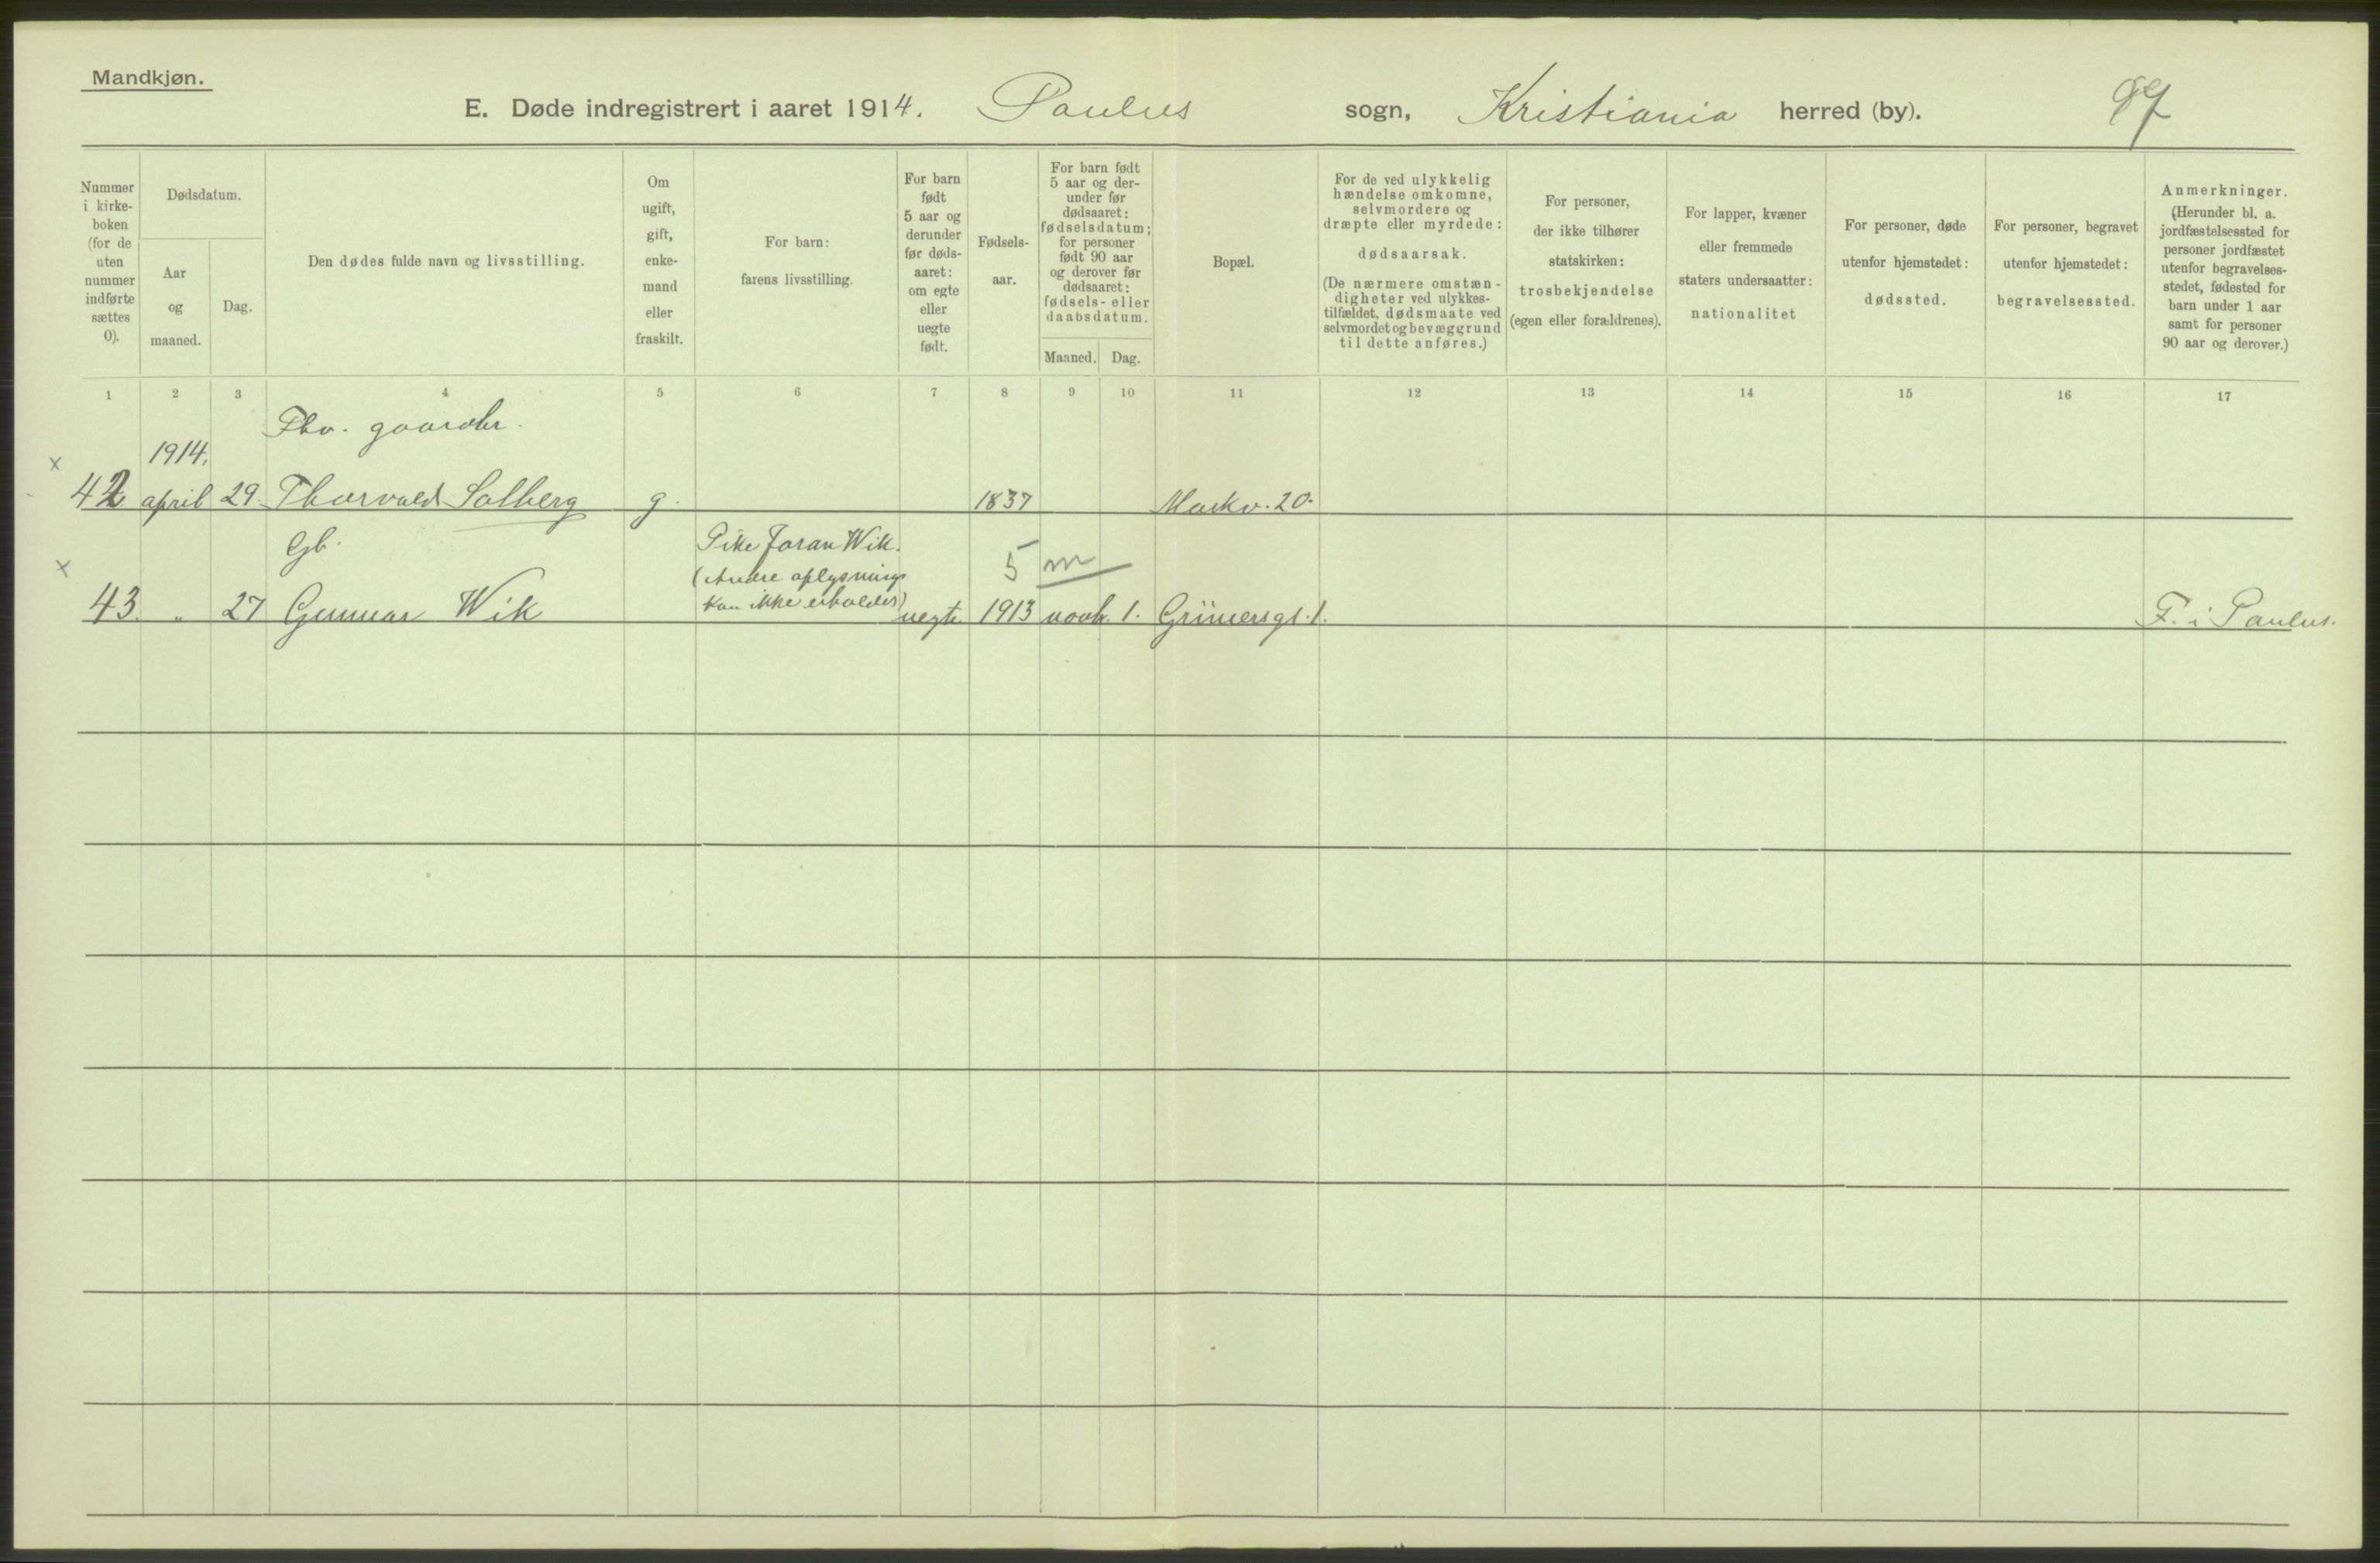 Mandkjøn.
E. Døde indregistrert i aaret 1914. Paulus sogn, Kristiania herred (by). 97
Nummer i kirke-boken (for de uten nummer indførte sættes 0).
Dødsdatum.
Aar og maaned.
Dag.
Den dødes fulde navn og livsstilling.
Om ugift, gift, enke-mand eller fraskilt.
For barn: farens livsstilling.
For barn født 5 aar og derunder før døds-aaret: om egte eller uegte født.
Fødsels-aar.
For barn født 5 aar og der-under før dødsaaret: fødselsdatum; for personer født 90 aar og derover før dødsaaret: fødsels- eller daabsdatum.
Maaned. Dag.
Bopæl.
For de ved ulykkelig hændelse omkomne, selvmordere og dræpte eller myrdede: dødsaarsak. (De nærmere omstæn-digheter ved ulykkes-tilfældet, dødsmaate ved selvmordet og bevæggrund til dette anføres.)
For personer, der ikke tilhører statskirken: trosbekjendelse (egen eller forældrenes).
For lapper, kvæner eller fremmede staters undersaatter: nationalitet
For personer, døde utenfor hjemstedet: dødssted.
For personer, begravet utenfor hjemstedet: begravelsessted.
Anmerkninger. (Herunder bl. a. jordfæstelsessted for personer jordfæstet utenfor begravelses-stedet, fødested for barn under 1 aar samt for personer 90 aar og derover.)
1 2 3 4 5 6 7 8 9 10 11 12 13 14 15 16 17
Fhv. gaardbr.
1914.
x
42 april 29. Thorvald Solberg g. 1837 Markv. 20.
Gb. Pike Joran Wik.
x (Andre oplysning. 5 m
kan ikke erholdes)
43. " 27 Gunnar Wik uegte 1913 novb. 1. Grünersgt. 1. F. i Paulus.